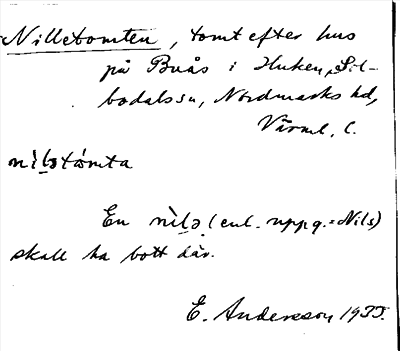 Nilletomten, tomt efter hus
på Buås i Huken, Sil-
bodals sn, Nordmarks hd,
Värml. l.
nìlətòmta
En nìlə (enl. uppg. = Nils)
skall ha bott där.
E. Andersson 1933.